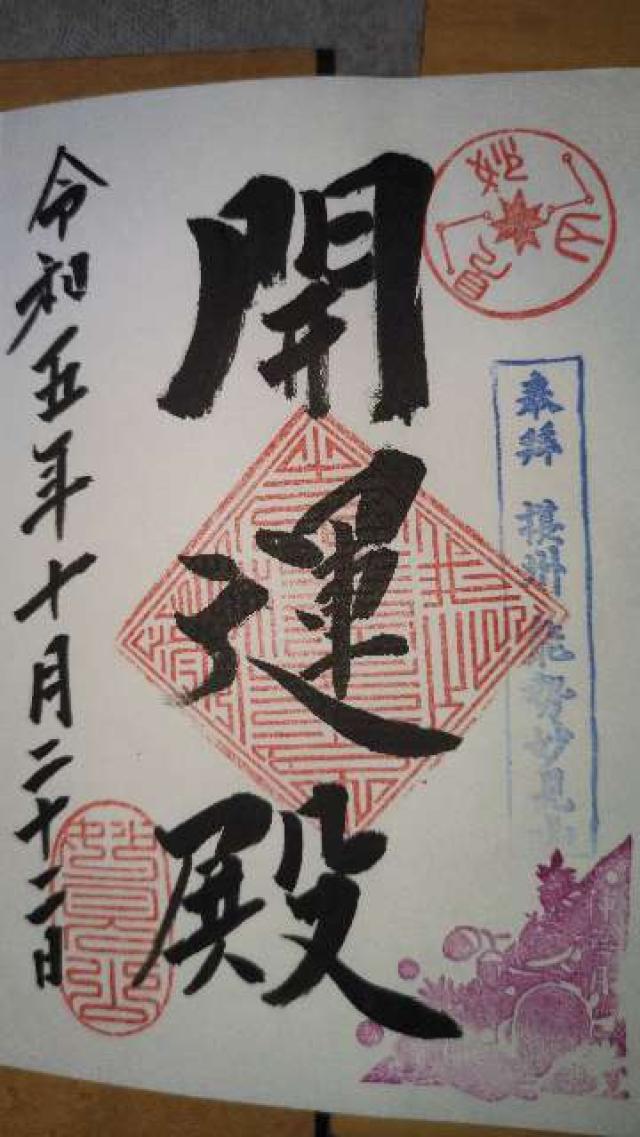 奉拝 摂州能勢妙見山
開運殿
令和五年十月二十二日